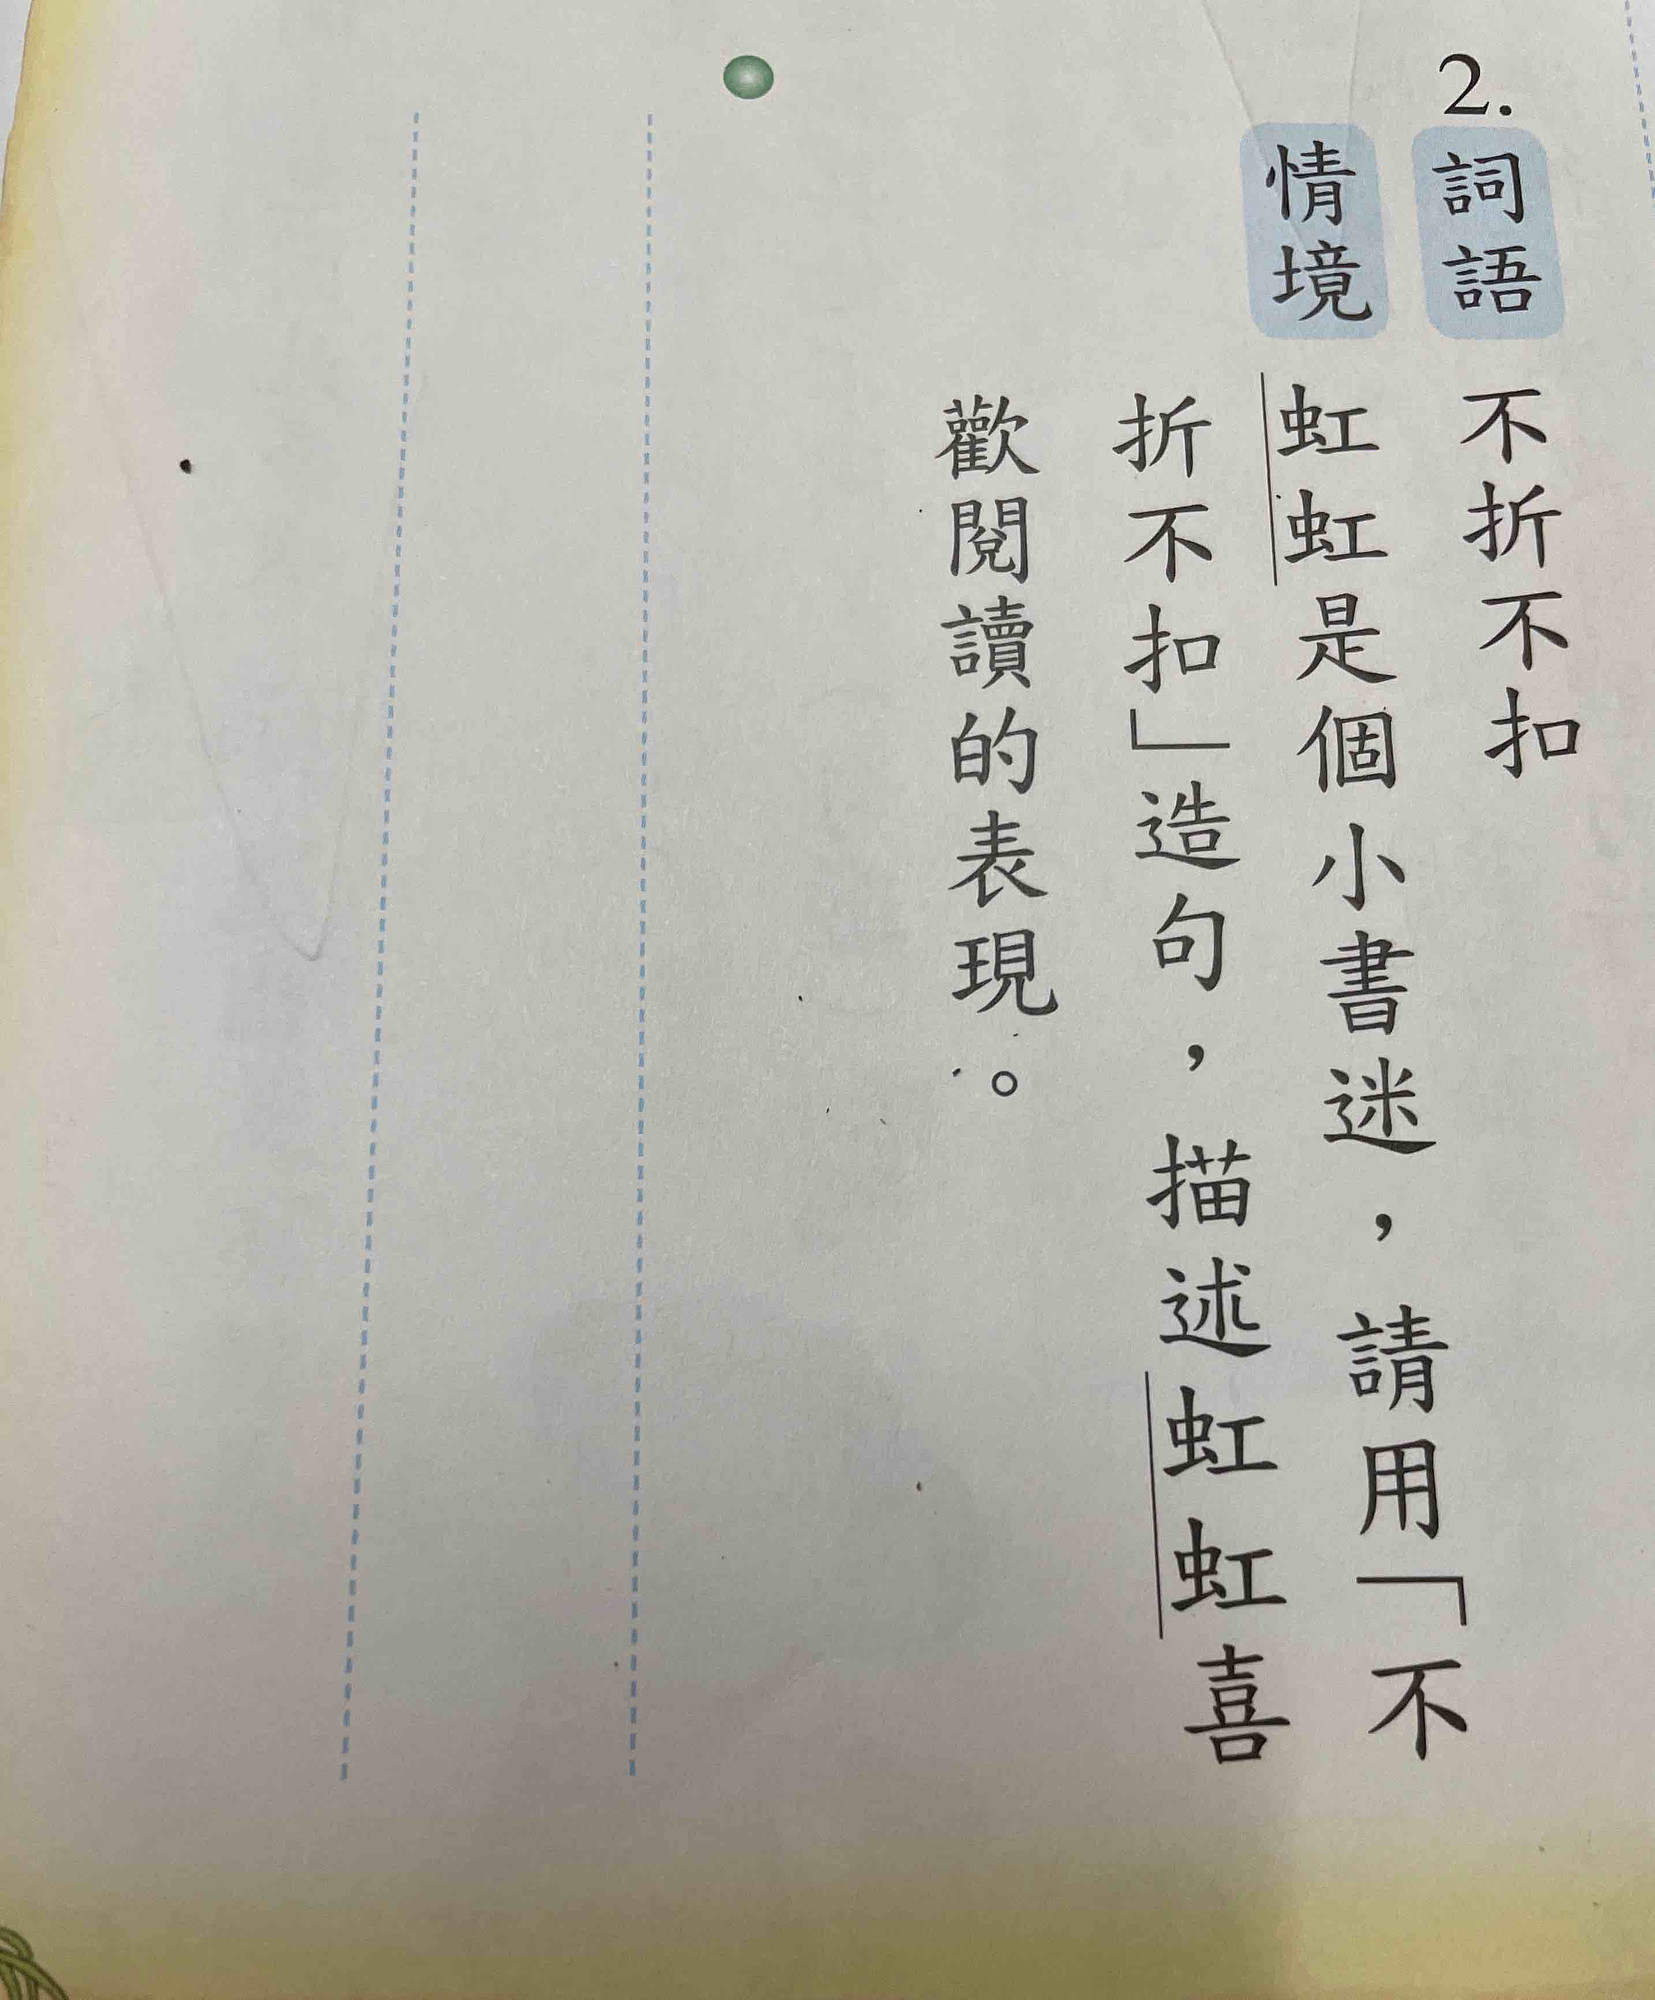 2.
詞語 不折不扣
情境 虹虹是個小書迷，請用「不
折不扣」造句，描述虹虹喜
歡閱讀的表現。